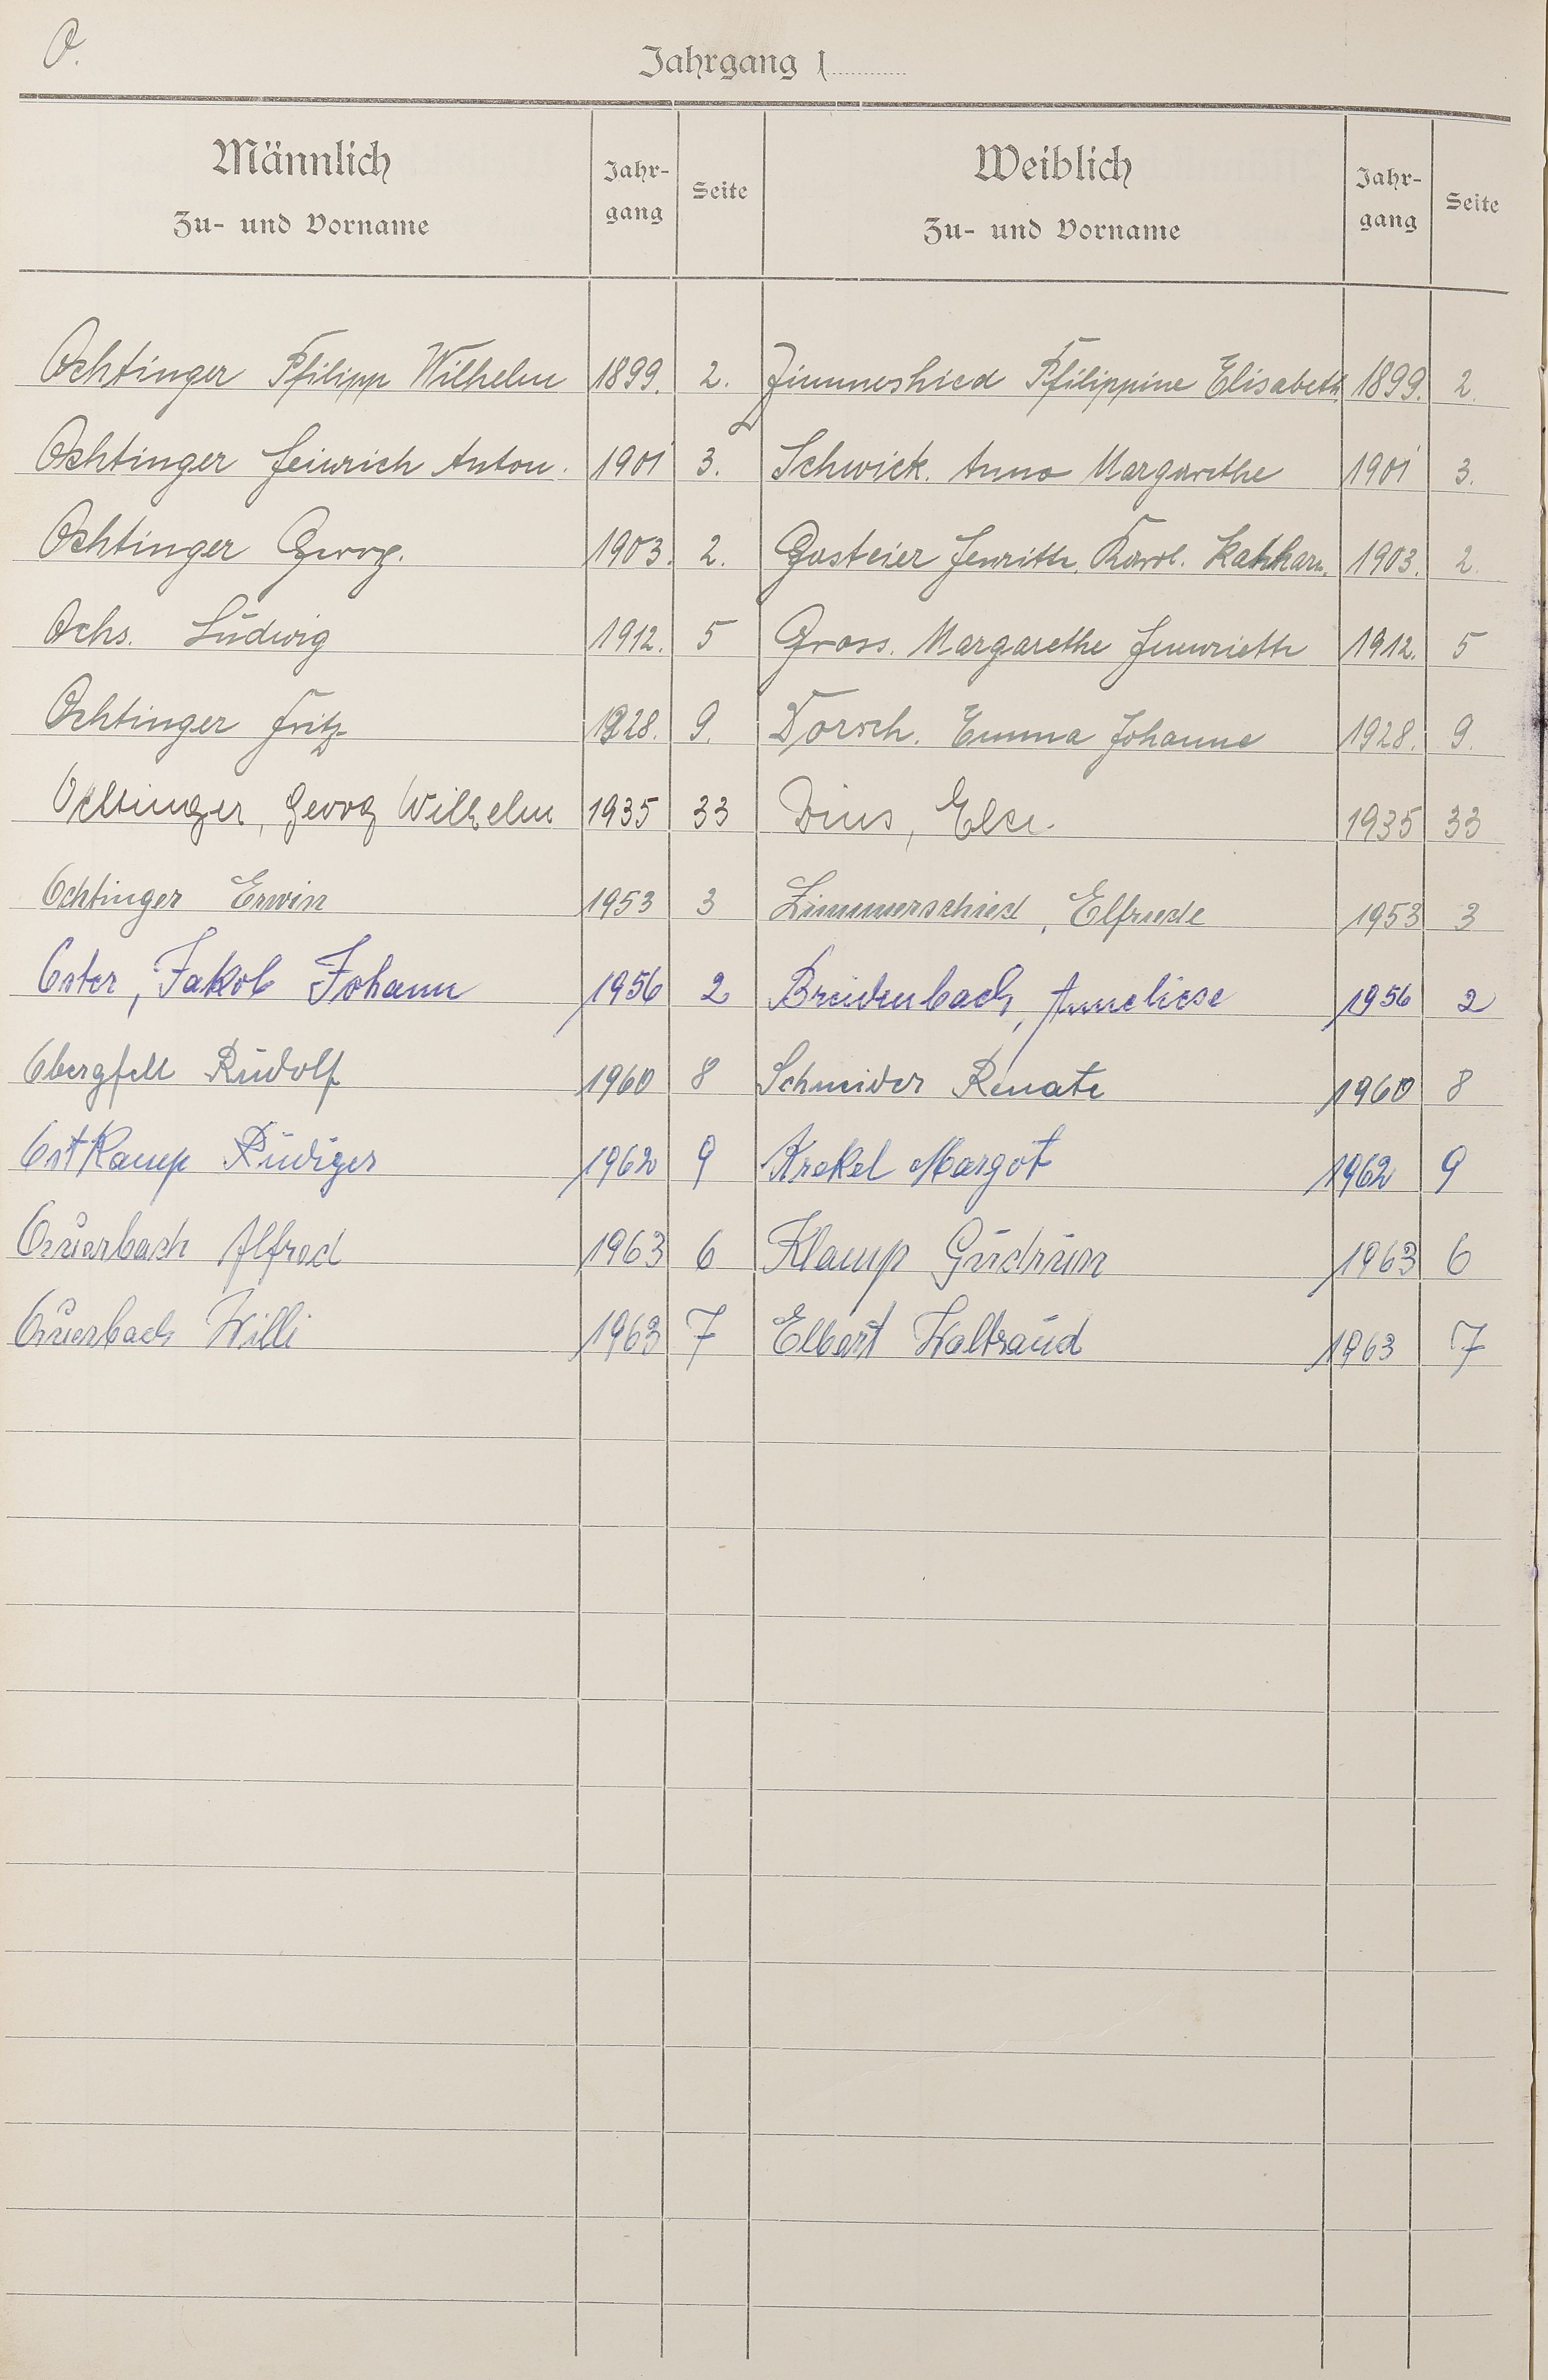 O.
Jahrgang 1
Männlich
Zu- und Vorname
Jahr-
gang
Seite
Weiblich
Zu- und Vorname
Jahr-
gang
Seite
Ochtinger Philipp Wilhelm 1899. 2. Zimmeshied Philippine Elisabeth 1899. 2.
Ochtinger Heinrich Anton. 1901 3. Schwick. Anna Margarethe 1901 3.
Ochtinger Georg. 1903. 2. Gasteier Henriette. Karol. Kathhar. 1903. 2.
Ochs. Ludwig 1912. 5 Gross. Margarethe Henriette 1912. 5
Ochtinger Fritz 1928. 9. Dorsch. Emma Johanne 1928. 9.
Ochtinger, Georg Wilhelm 1935 33 Dins, Else. 1935 33
Ochtinger Erwin 1953 3 Zimmerschied, Elfriede 1953 3
Oster, Jakob Johann 1956 2 Breidenbach, Anneliese 1956 2
Obergfell Rudolf 1960 8 Schneider Renate 1960 8
Ostkamp Rüdiger 1962 9 Krekel Margot 1962 9
Alfred 1963 6 Klamp Gudrun 1963 6
Willi 1963 7 Elbert Waltraud 1963 7